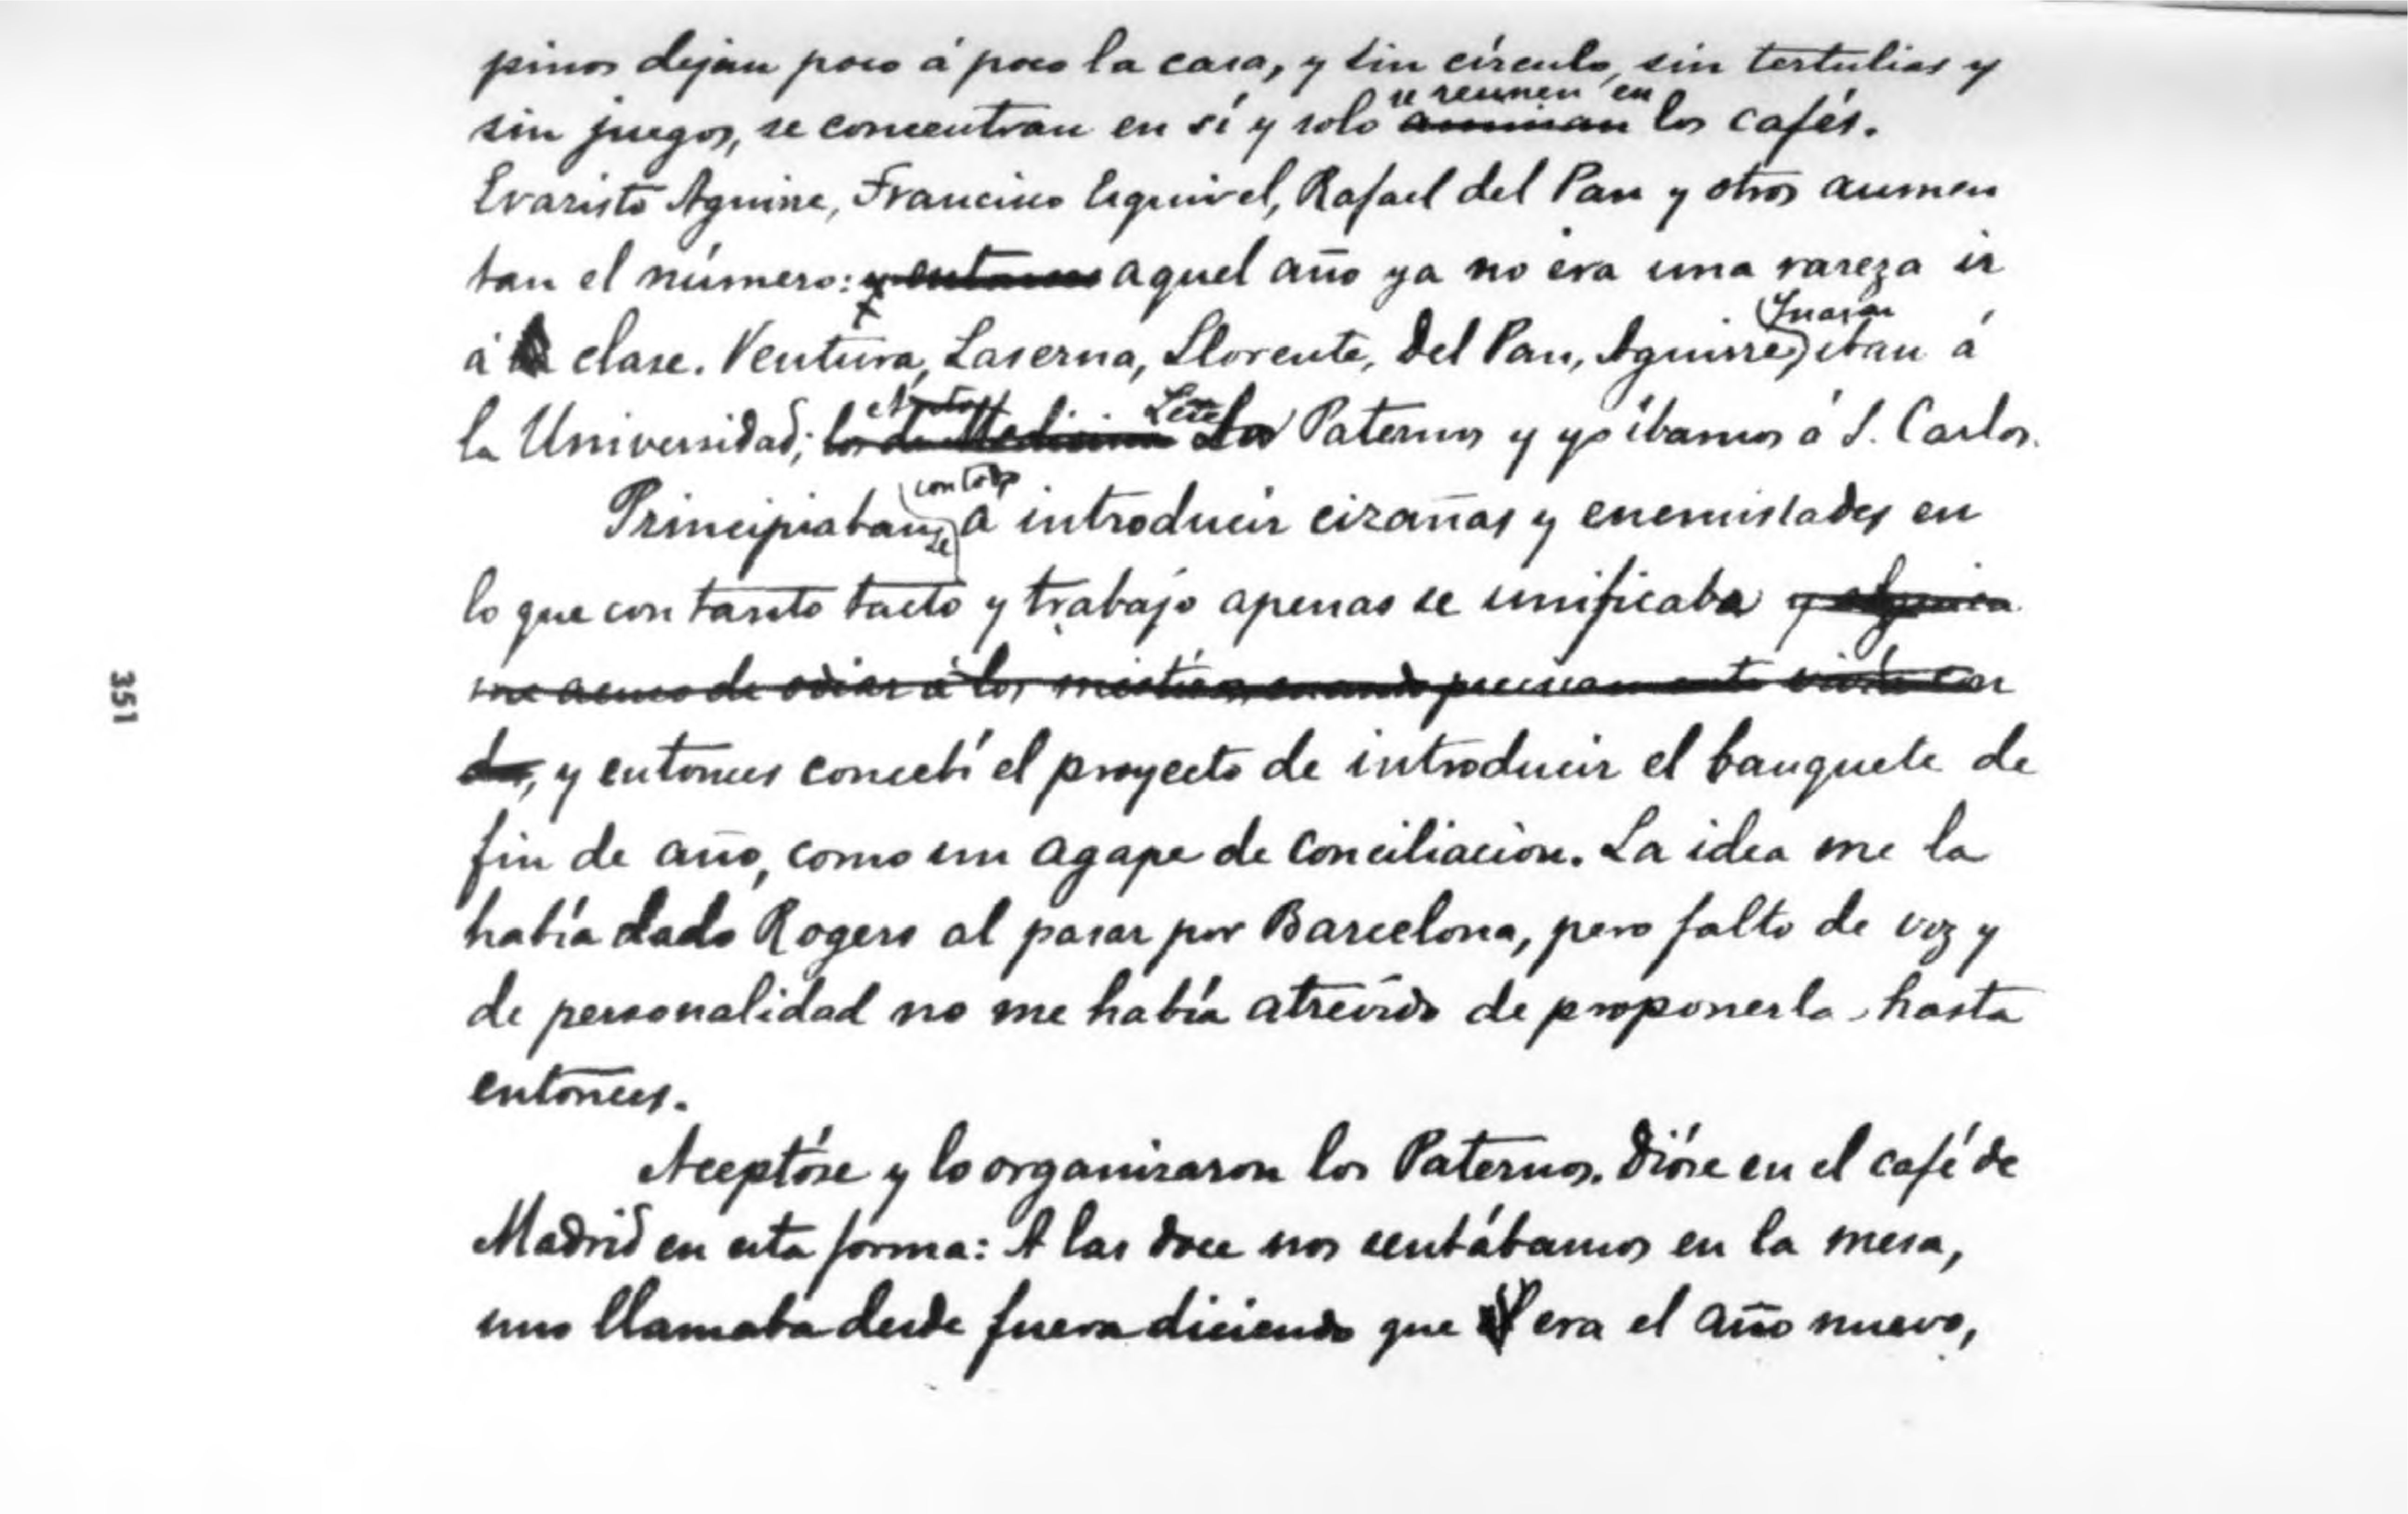 pinos dejan poco á poco la casa, y sin círculo, sin tertulias y
se reunen en
sin juegos, se concentran en sí y solo animan los cafés.
Evaristo Aguirre, Francisco Esquivel, Rafael del Pan y otros aumen
tan el número: aquel año ya no era una rareza ir
Ynasar
á clase. Ventura, Laserna, Llorente, Del Pan, Aguirre, iban á
Lete
la Universidad; los de Medicina Los Paternos y yo íbamos á S. Carlos.
con todo
Principiabanse á introducir cizañas y enemistades en
lo que con tanto tacto y trabajo apenas se unificaba y alguien
me acusó de odiar á los mestizos, cuando precisamente
, y entonces concebí el proyecto de introducir el banquete de
fin de año, como un agape de conciliación. La idea me la
había dado Rogers al pasar por Barcelona, pero falto de voz y
de personalidad no me había atrevido de proponerla hasta
entonces.
Aceptóse y lo organizaron los Paternos. Dióse en el café de
Madrid en esta forma: A las doce nos sentábamos en la mesa,
uno llamaba desde fuera diciendo que era el año nuevo,
351